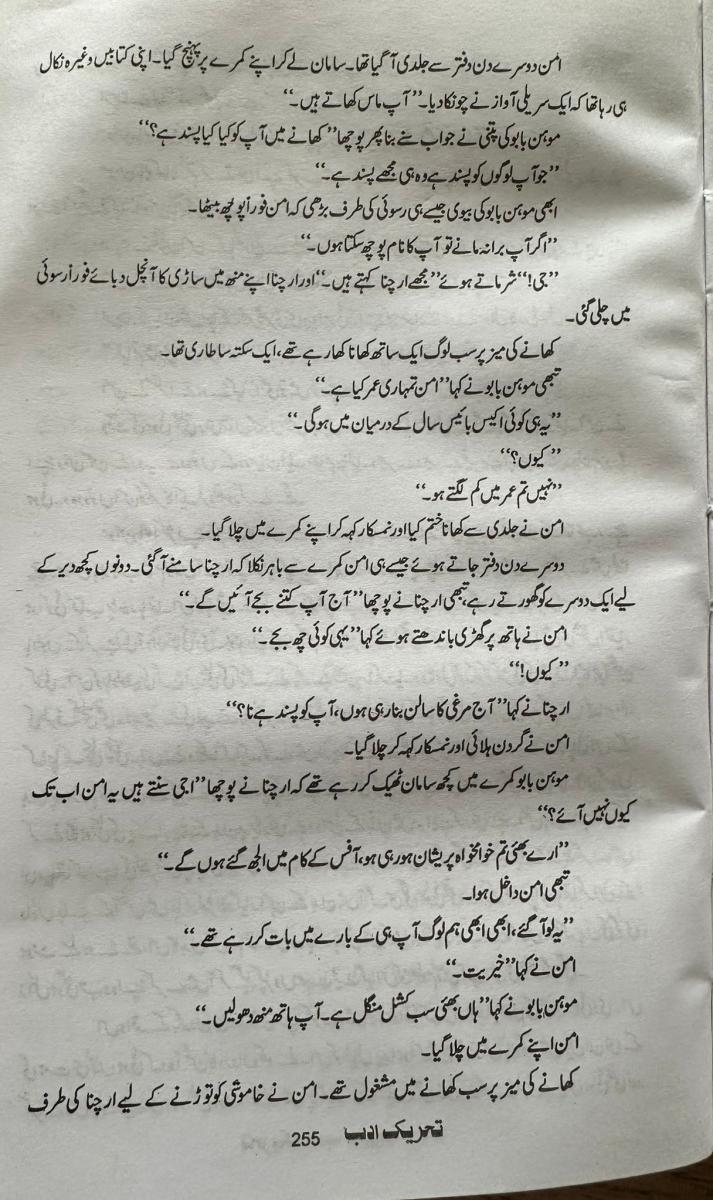 امن دوسرے دن دفتر سے جلدی آ گیا تھا۔ سامان لے کر اپنے کمرے پر پہنچ گیا۔ اپنی کتابیں وغیرہ نکال
ہی رہا تھا کہ ایک سریلی آواز نے چونکا دیا۔ ’’آپ ماس کھاتے ہیں۔‘‘
موہن بابو کی پتنی نے جواب سنے بنا پھر پوچھا ’’کھانے میں آپ کو کیا کیا پسند ہے؟‘‘
’’جو آپ لوگوں کو پسند ہے وہ ہی مجھے پسند ہے۔‘‘
ابھی موہن بابو کی بیوی جیسے ہی رسوئی کی طرف بڑھی کہ امن فوراً پوچھ بیٹھا۔
’’اگر آپ برا نہ مانے تو آپ کا نام پوچھ سکتا ہوں۔‘‘
’’جی!‘‘ شرماتے ہوئے ’’مجھے ارچنا کہتے ہیں۔‘‘ اور ارچنا اپنے منھ میں ساڑی کا آنچل دبائے فوراً رسوئی
میں چلی گئی۔
کھانے کی میز پر سب لوگ ایک ساتھ کھانا کھا رہے تھے، ایک سکتہ سا طاری تھا۔
تبھی موہن بابو نے کہا ’’امن تمہاری عمر کیا ہے۔‘‘
’’یہ ہی کوئی اکیس بائیس سال کے درمیان میں ہوگی۔‘‘
’’کیوں؟‘‘
’’نہیں تم عمر میں کم لگتے ہو۔‘‘
امن نے جلدی سے کھانا ختم کیا اور نمسکار کہہ کر اپنے کمرے میں چلا گیا۔
دوسرے دن دفتر جاتے ہوئے جیسے ہی امن کمرے سے باہر نکلا کہ ارچنا سامنے آ گئی۔ دونوں کچھ دیر کے
لیے ایک دوسرے کو گھورتے رہے، تبھی ارچنا نے پوچھا ’’آج آپ کتنے بجے آئیں گے۔‘‘
امن نے ہاتھ پر گھڑی باندھتے ہوئے کہا ’’یہی کوئی چھ بجے۔‘‘
’’کیوں!‘‘
ارچنا نے کہا ’’آج مرغی کا سالن بنا رہی ہوں، آپ کو پسند ہے نا؟‘‘
امن نے گردن ہلائی اور نمسکار کہہ کر چلا گیا۔
موہن بابو کمرے میں کچھ سامان ٹھیک کر رہے تھے کہ ارچنا نے پوچھا ’’اجی سنتے ہیں یہ امن اب تک
کیوں نہیں آئے؟‘‘
’’ارے بھئی تم خوامخواہ پریشان ہو رہی ہو، آفس کے کام میں الجھ گئے ہوں گے۔‘‘
تبھی امن داخل ہوا۔
’’یہ لو آ گئے، ابھی ابھی ہم لوگ آپ ہی کے بارے میں بات کر رہے تھے۔‘‘
امن نے کہا ’’خیریت۔‘‘
موہن بابو نے کہا ’’ہاں بھئی سب کشل منگل ہے۔ آپ ہاتھ منھ دھو لیں۔‘‘
امن اپنے کمرے میں چلا گیا۔
کھانے کی میز پر سب کھانے میں مشغول تھے۔ امن نے خاموشی کو توڑنے کے لیے ارچنا کی طرف
تحریک ادب 255